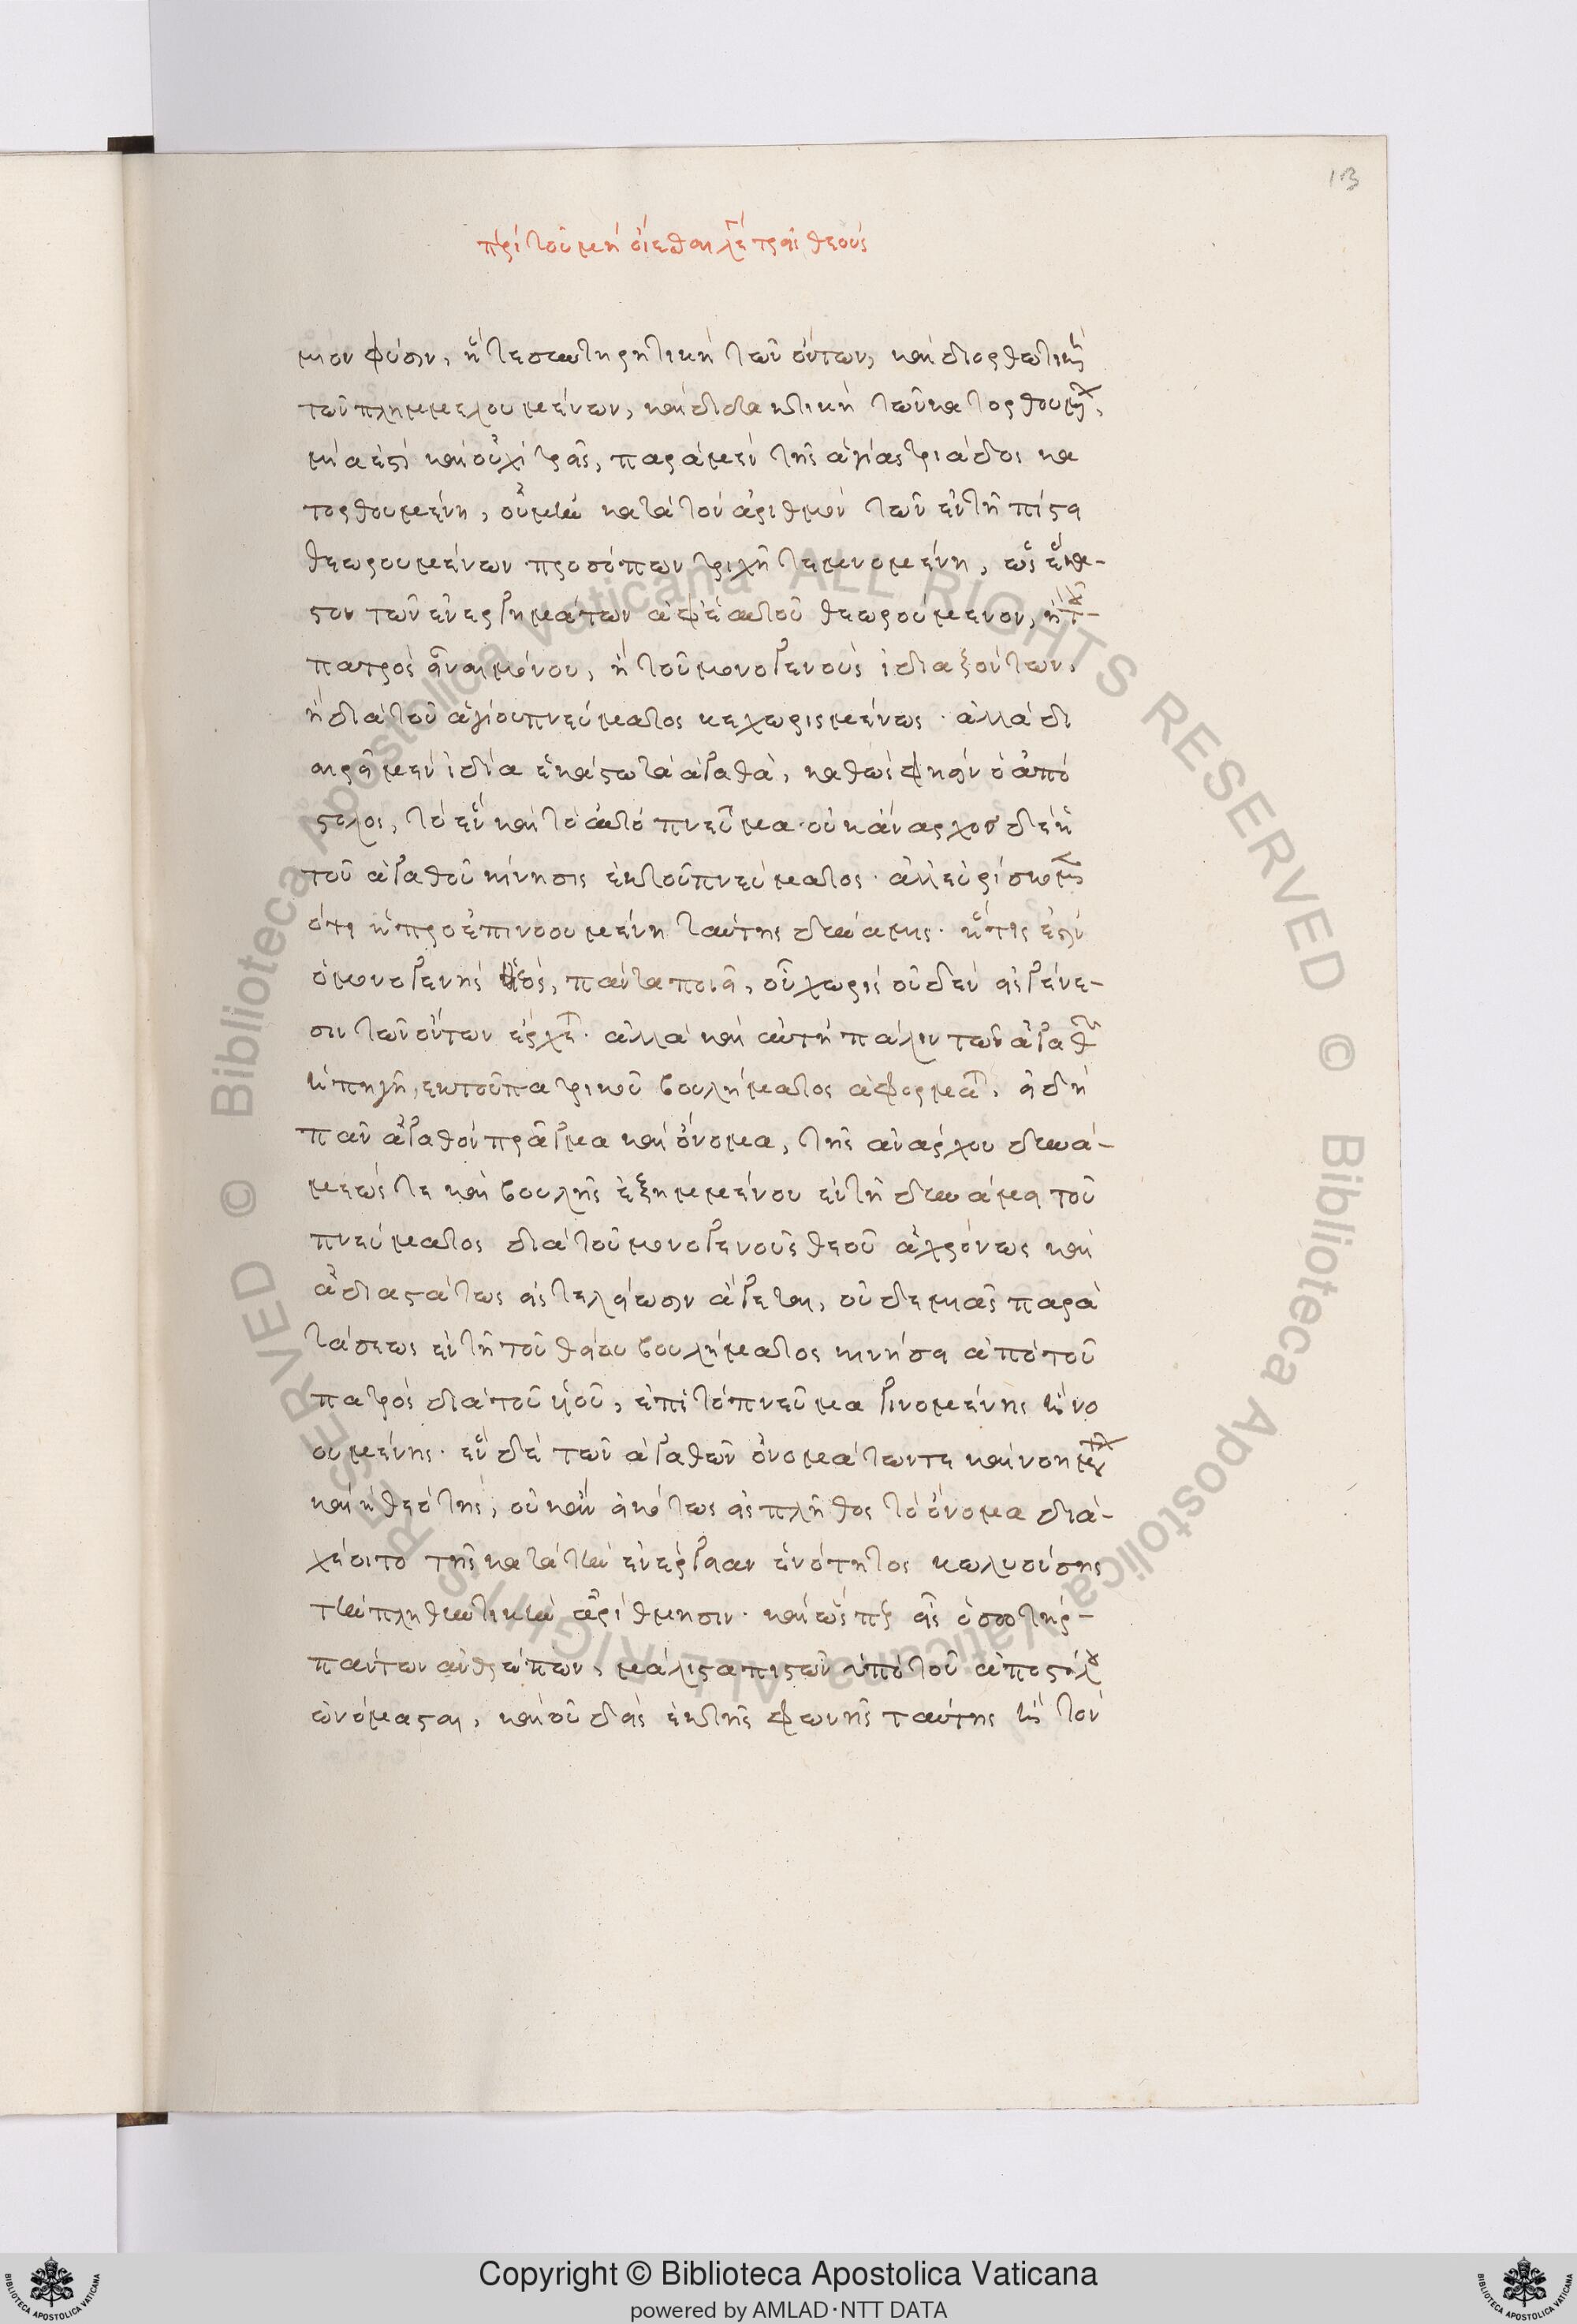 13
περὶ τοῦ μὴ οἴεσθαι λέγειν τρεῖς θεούς
μιον φύσιν, ἥ τε συντηρητικὴ τῶν ὄντων, καὶ διορθωτικὴ
τῶν πλημμελουμένων, καὶ διδακτικὴ τῶν κατορθουμένων,
μία ἐστὶ καὶ οὐχὶ τρεῖς, παρὰ μὲν τῆς ἁγίας τριάδος κα
τορθουμένη, οὐ μὴν κατὰ τὸν ἀριθμὸν τῶν ἐν τῇ πίστει
θεωρουμένων προσόπων τριχῆ τεμνομένη, ὡς ἕκα-
στον τῶν ἐνεργημάτων ἐφ' ἑαυτοῦ θεωρούμενον, ἢ τοῦ
πατρὸς εἶναι μόνου, ἢ τοῦ μονογενοῦς ἰδιαζόντως,
ἢ διὰ τοῦ ἁγίου πνεύματος κεχωρισμένως· ἀλλὰ δι
αιρεῖ μὲν ἰδία ἑκάστω τὰ ἀγαθὰ, καθώς φησιν ὁ ἀπό
στολος, τὸ ἓν καὶ τὸ αὐτὸ πνεῦμα· οὐκ ἄναρχον δὲ ἡ
τοῦ ἀγαθοῦ κίνησις ἐκ τοῦ πνεύματος· ἀλλ' εὑρίσκομεν
ὅτι ἡ προεπινοουμένη ταύτης δύναμις· ἥτις ἐστὶν
ὁ μονογενὴς θεός, πάντα ποιεῖ, οὗ χωρὶς οὐδὲν εἰς γένε-
σιν τῶν ὄντων ἔρχεται· ἀλλὰ καὶ αὐτὴ πάλιν τῶν ἀγαθῶν
ἡ πηγὴ, ἐκ τοῦ πατρικοῦ βουλήματος ἀφορμᾶται, εἰ δὴ
πᾶν ἀγαθὸν πρᾶγμα καὶ ὄνομα, τῆς ἀνάρχου δυνά-
μεώς τε καὶ βουλῆς ἐξημμένον ἐν τῇ δυνάμει τοῦ
πνεύματος διὰ τοῦ μονογενοῦς θεοῦ ἀχρόνως καὶ
ἀδιαστάτως εἰς τελείωσιν ἄγεται, οὐδεμιᾶς παρα
τάσεως ἐν τῇ τοῦ θείου βουλήματος κινήσει ἀπὸ τοῦ
πατρὸς διὰ τοῦ υἱοῦ, ἐπὶ τὸ πνεῦμα γινομένης ἢ νο
ουμένης· ἓν δὲ τῶν ἀγαθῶν ὀνομάτων τε καὶ νοημάτων
καὶ ἡ θεότης, οὐκ ἂν εἰκότως εἰς πλῆθος τὸ ὄνομα δια-
χέοιτο τῆς κατὰ τὴν ἐνέργειαν ἑνότητος κωλυούσης
τὴν πληθυντικὴν ἀρίθμησιν· καὶ ὥσπερ εἷς ὁ σωτὴρ-
πάντων ἀνθρώπων, μάλιστα πιστῶν ὑπὸ τοῦ ἀποστόλου
ὠνόμασται, καὶ οὐδεὶς ἐκ τῆς φωνῆς ταύτης ἢ τὸν
Copyright © Biblioteca Apostolica Vaticana
powered by AMLAD·NTT DATA